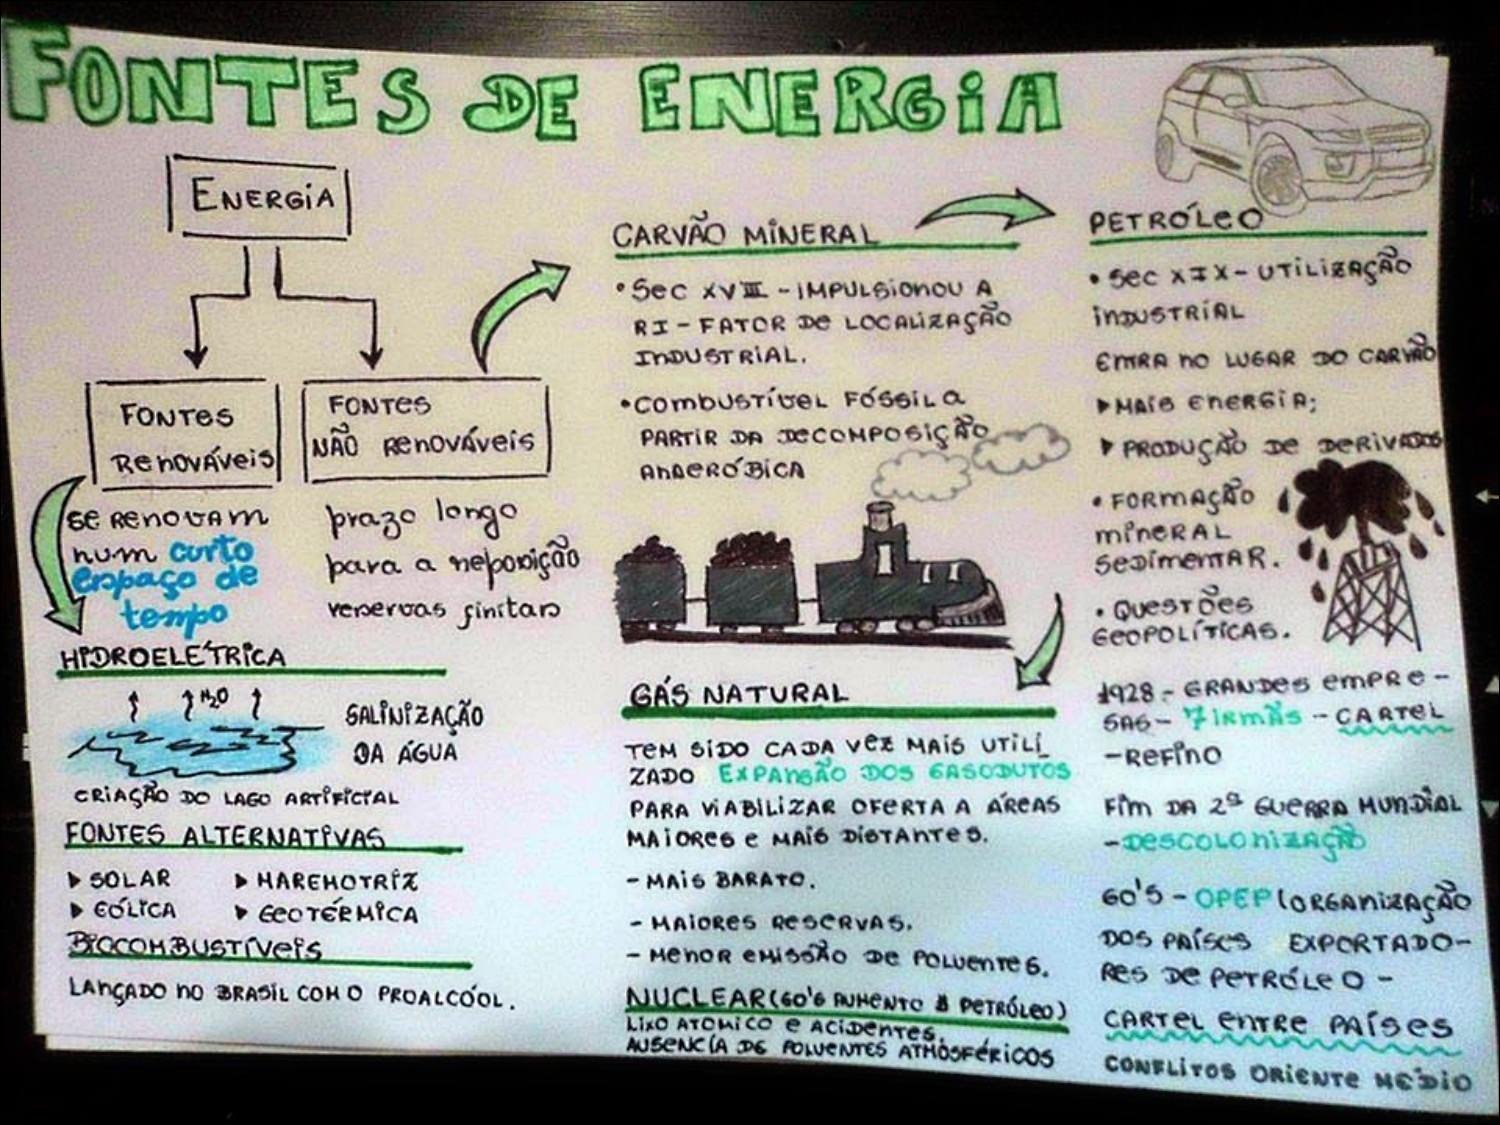 FONTES DE ENERGIA
ENERGIA
FONTES
RENOVÁVEIS
FONTES
NÃO RENOVÁVEIS
SE RENOVAM
NUM curto
espaço de
tempo
prazo longo
para a reposição
reservas finitas
HIDROELÉTRICA
H2O
SALINIZAÇÃO
DA ÁGUA
CRIAÇÃO DO LAGO ARTIFICIAL
FONTES ALTERNATIVAS
▸ SOLAR ▸ MAREMOTRIZ
▸ EÓLICA ▸ GEOTÉRMICA
BIOCOMBUSTÍVEIS
LANÇADO NO BRASIL COM O PROALCOÓL.
CARVÃO MINERAL
• SEC XVIII - IMPULSIONOU A
RI - FATOR DE LOCALIZAÇÃO
INDUSTRIAL.
• COMBUSTÍVEL FÓSSIL A
PARTIR DA DECOMPOSIÇÃO
ANAERÓBICA
GÁS NATURAL
TEM SIDO CADA VEZ MAIS UTILI_
ZADO EXPANSÃO DOS GASODUTOS
PARA VIABILIZAR OFERTA A ÁREAS
MAIORES E MAIS DISTANTES.
- MAIS BARATO.
- MAIORES RESERVAS.
- MENOR EMISSÃO DE POLUENTES.
NUCLEAR (60'S AUMENTO $ PETRÓLEO)
LIXO ATOMICO E ACIDENTES.
AUSENCÍA DE POLUENTES ATMÓSFÉRICOS
PETRÓLEO
• SEC XIX - UTILIZAÇÃO
INDUSTRIAL
ENTRA NO LUGAR DO CARVÃO
▸ MAIS ENERGIA;
▸ PRODUÇÃO DE DERIVADOS
• FORMAÇÃO
MINERAL
SEDIMENTAR.
• QUESTÕES
GEOPOLÍTICAS.
1928 - GRANDES EMPRE -
SAS - 7 IRMÃS - CARTEL
- REFINO
FIM DA 2ª GUERRA MUNDIAL
- DESCOLONIZAÇÃO
60'S - OPEP (ORGANIZAÇÃO
DOS PAÍSES EXPORTADO-
RES DE PETRÓLEO -
CARTEL ENTRE PAÍSES
CONFLITOS ORIENTE MÉDIO